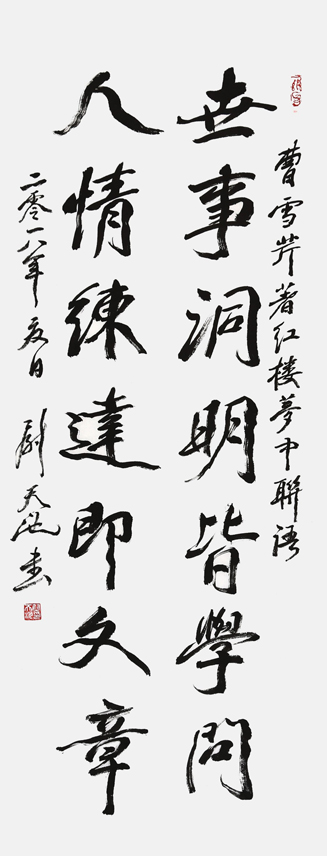 曹雪芹著红楼夢中聯语
世事洞明皆學問
人情練達即文章
二零一八年夏日
尉天池書